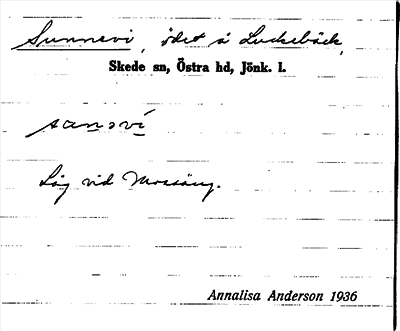 Sunnevi, ödet å Luckebäck,
Skede sn, Östra hd, Jönk. l.
sanəví
Låg vid Mossäng.
Annalisa Anderson 1936